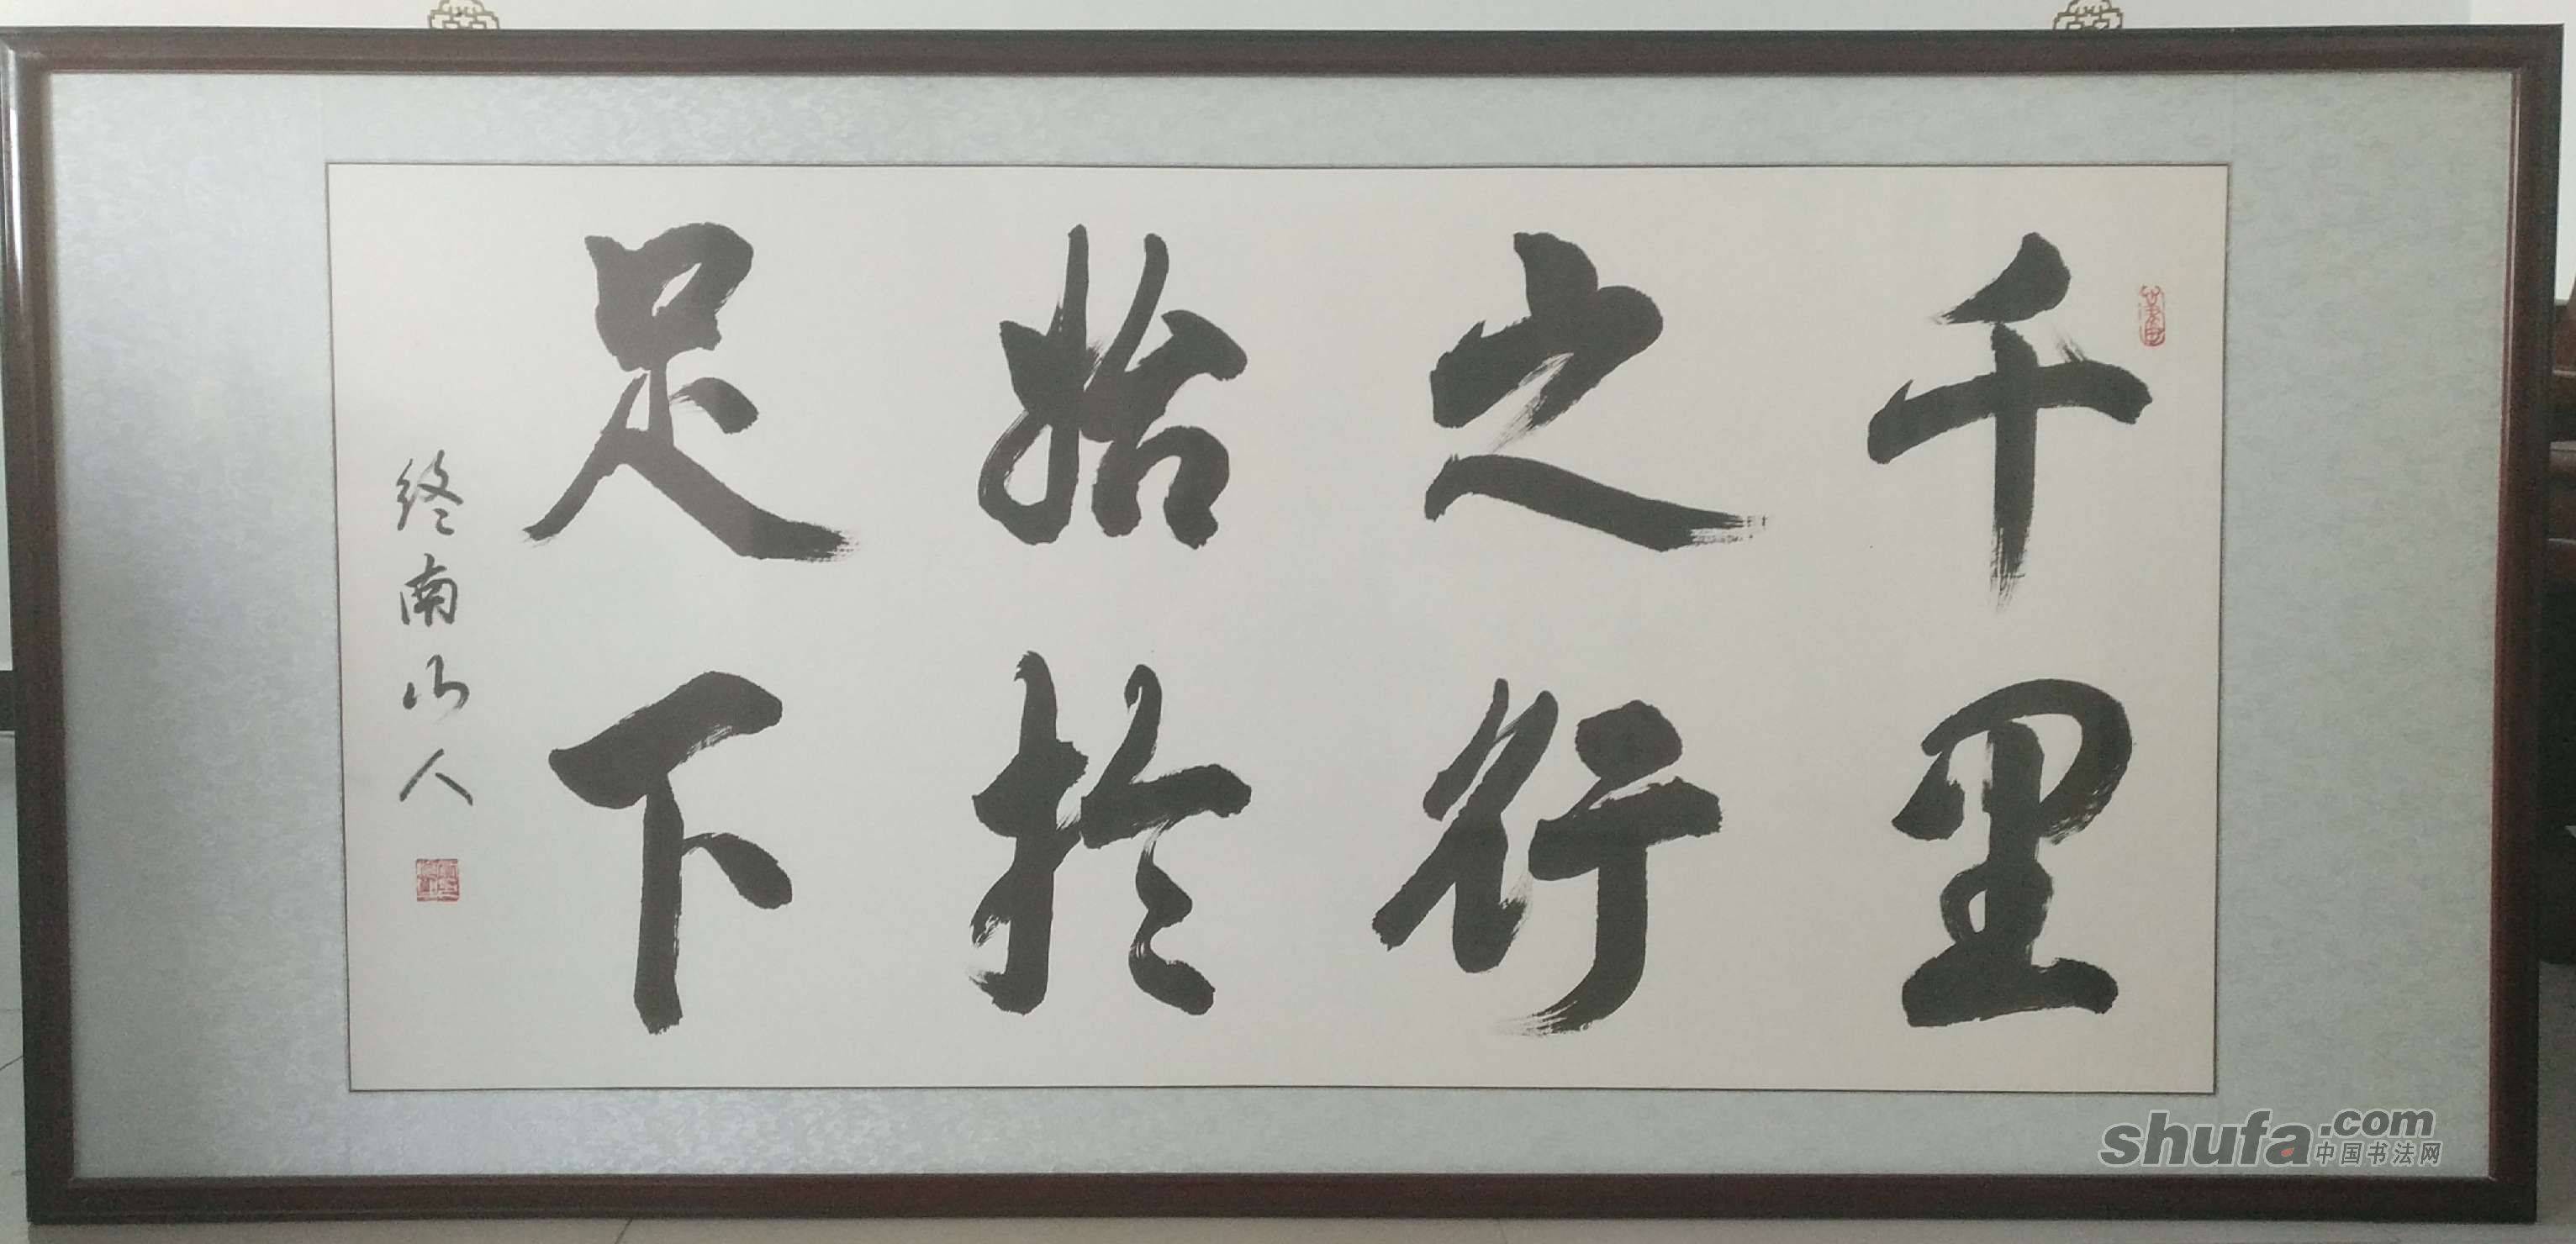 千里
之行
始於
足下
終南山人
shufa.com
中国书法网